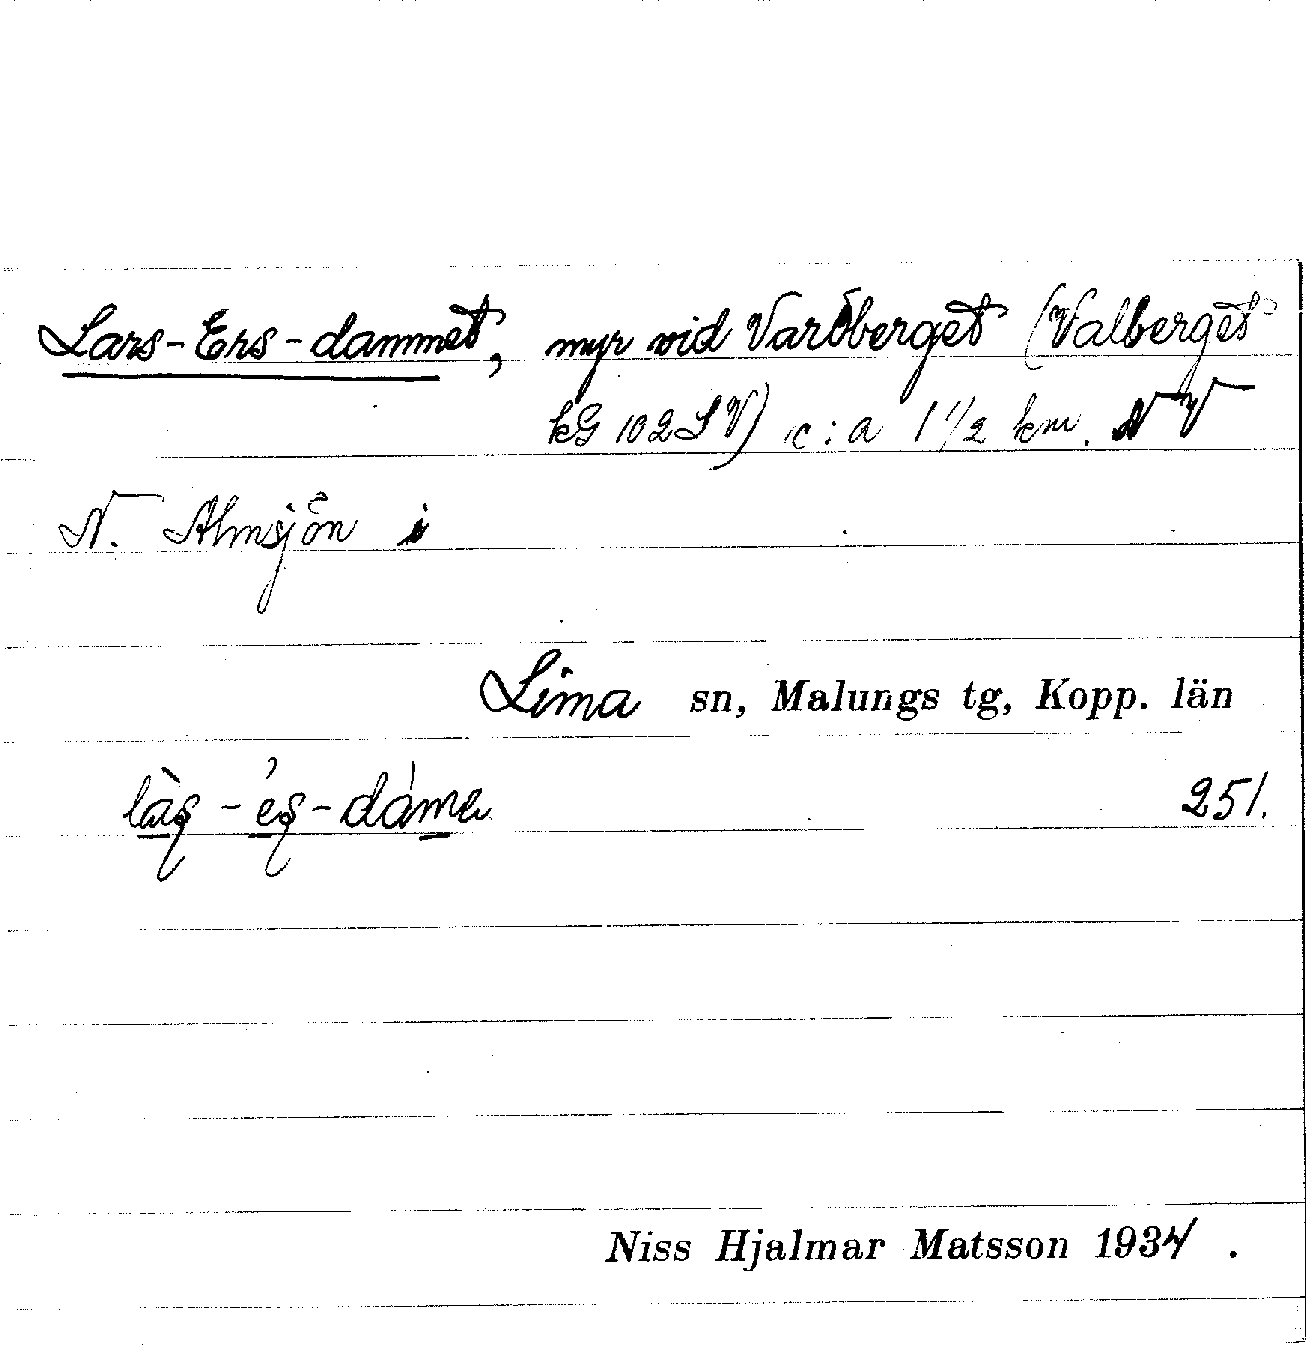 Lars-Ers-dammet, myr vid Vardberget (Valberget
kG 102 SV) c:a 1 1/2 km. NV
N. Almsjön i
Lima sn, Malungs tg, Kopp. län
251.
Niss Hjalmar Matsson 1934.